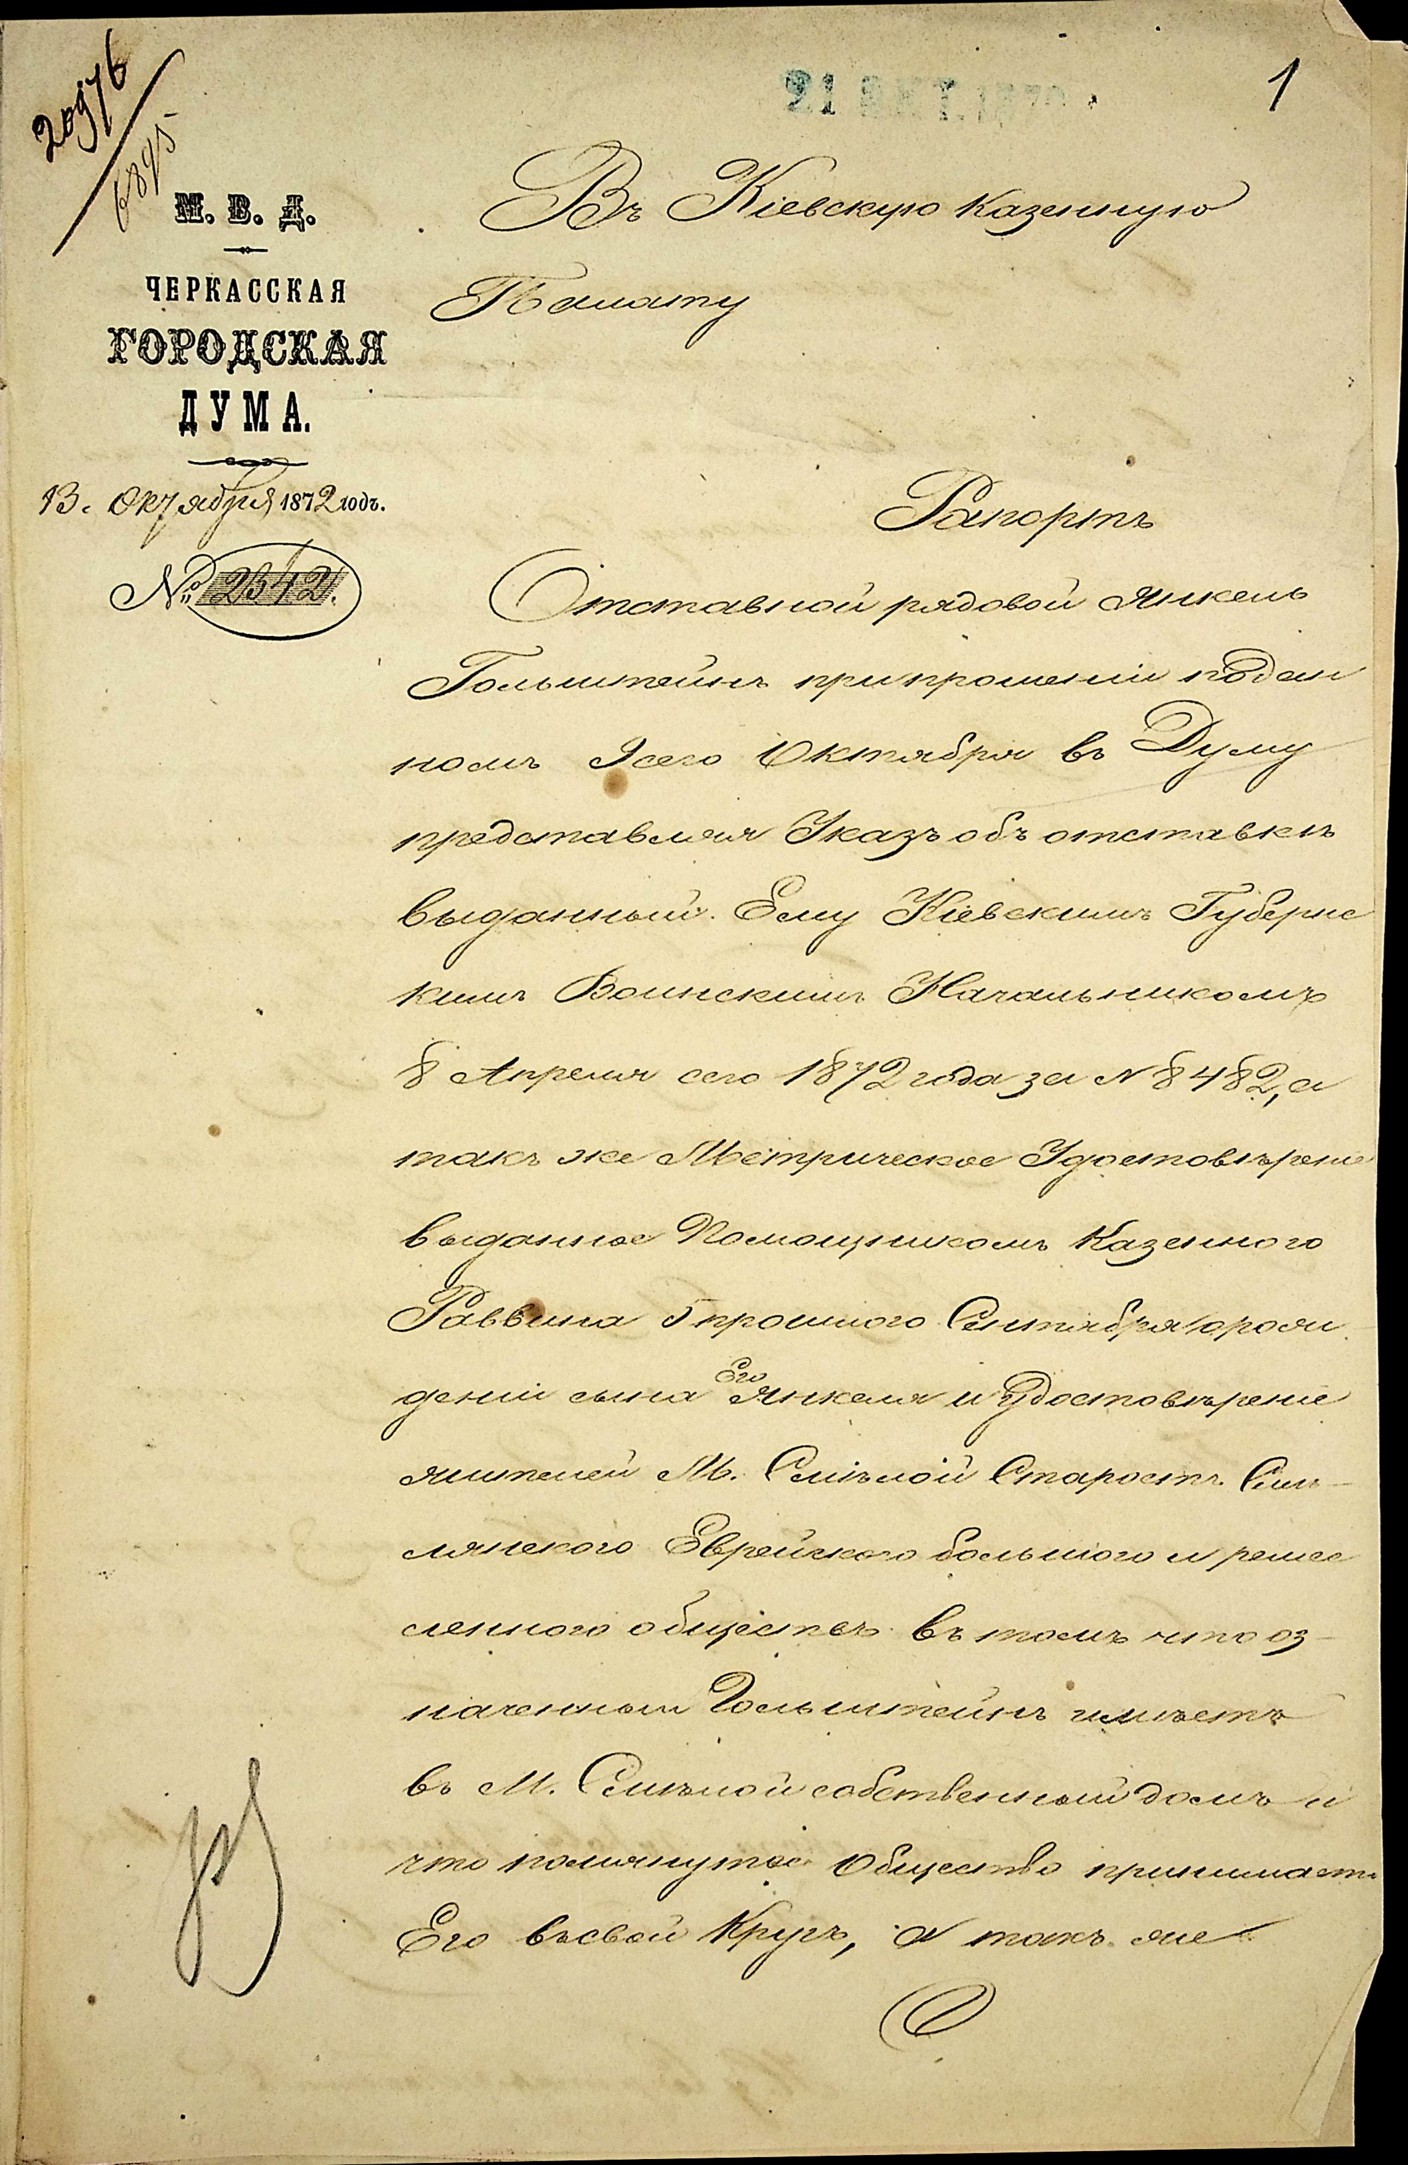 20976
6895
21 ОКТ. 1872
1
М. В. Д.
ЧЕРКАССКАЯ
ГОРОДСКАЯ
ДУМА.
13. Октября 1872 годъ.
№ 2342.
Въ Кіевскую Казенную
Палату
Рапортъ
Отставной рядовой Янкель
Гольштейнъ при прошеніи подан
номъ 9 сего Октября въ Думу
представляя Указъ объ отставкѣ
выданный Ему Кіевскимъ Губернс
кимъ Воинскимъ Начальникомъ
8 Апреля сего 1872 года за N 8482, а
такъ же Метрическое Удостовѣреніе
выданное Помощникомъ Казенного
Раввина 5 прошлого Сентября о рож
деніи сына Его Янкеля и Удостовѣреніе
жителей М. Смѣлой Старостъ Смѣ-
лянского Еврейского большого и ремес
ленного обществъ въ томъ что оз-
наченный Гольштейнъ имѣетъ
въ М. Смѣлой собственный домъ и
что помянутое Общество принимаетъ
Его въ свой Кругъ, а такъ же